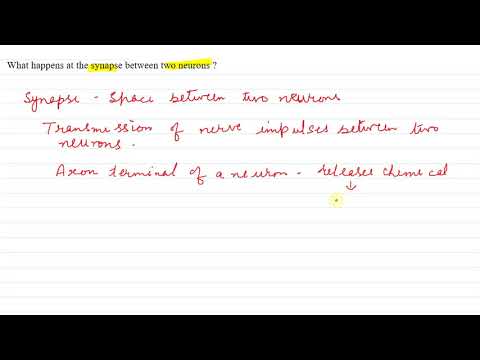 What happens at the synapse between two neurons ?
Synapse - Space between two neurons
Transmission of nerve impulses between two
neurons.
Axon terminal of a neuron - releases chemical
↓